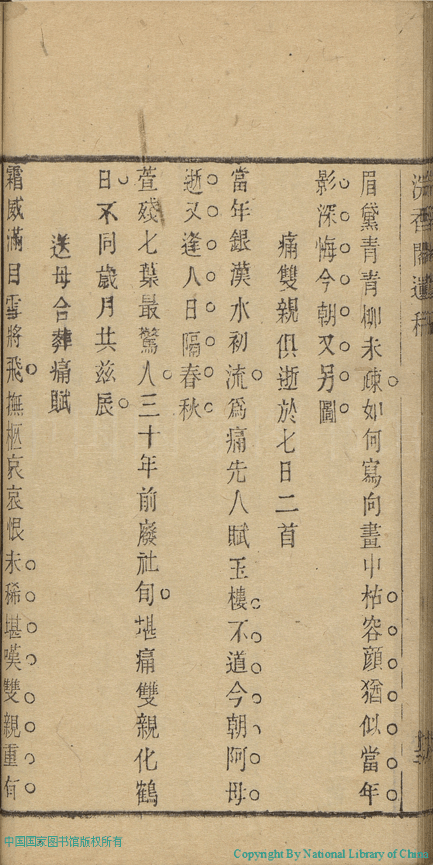 眉黛青青柳未疎如何寫向畫中枯容顏猶似當年
影深悔今朝又另圖
痛雙親俱逝於七日二首
當年銀漢水初流爲痛先人賦玉樓不道今朝阿母
逝又逢人日隔春秋
萱殘七葉最驚人三十年前廢社旬堪痛雙親化鶴
日不同歲月共茲辰
送母合葬痛賦
霜威滿目雪將飛撫柩哀哀恨未稀堪嘆雙親重有
中国国家图书馆版权所有
Copyright By National Library of China